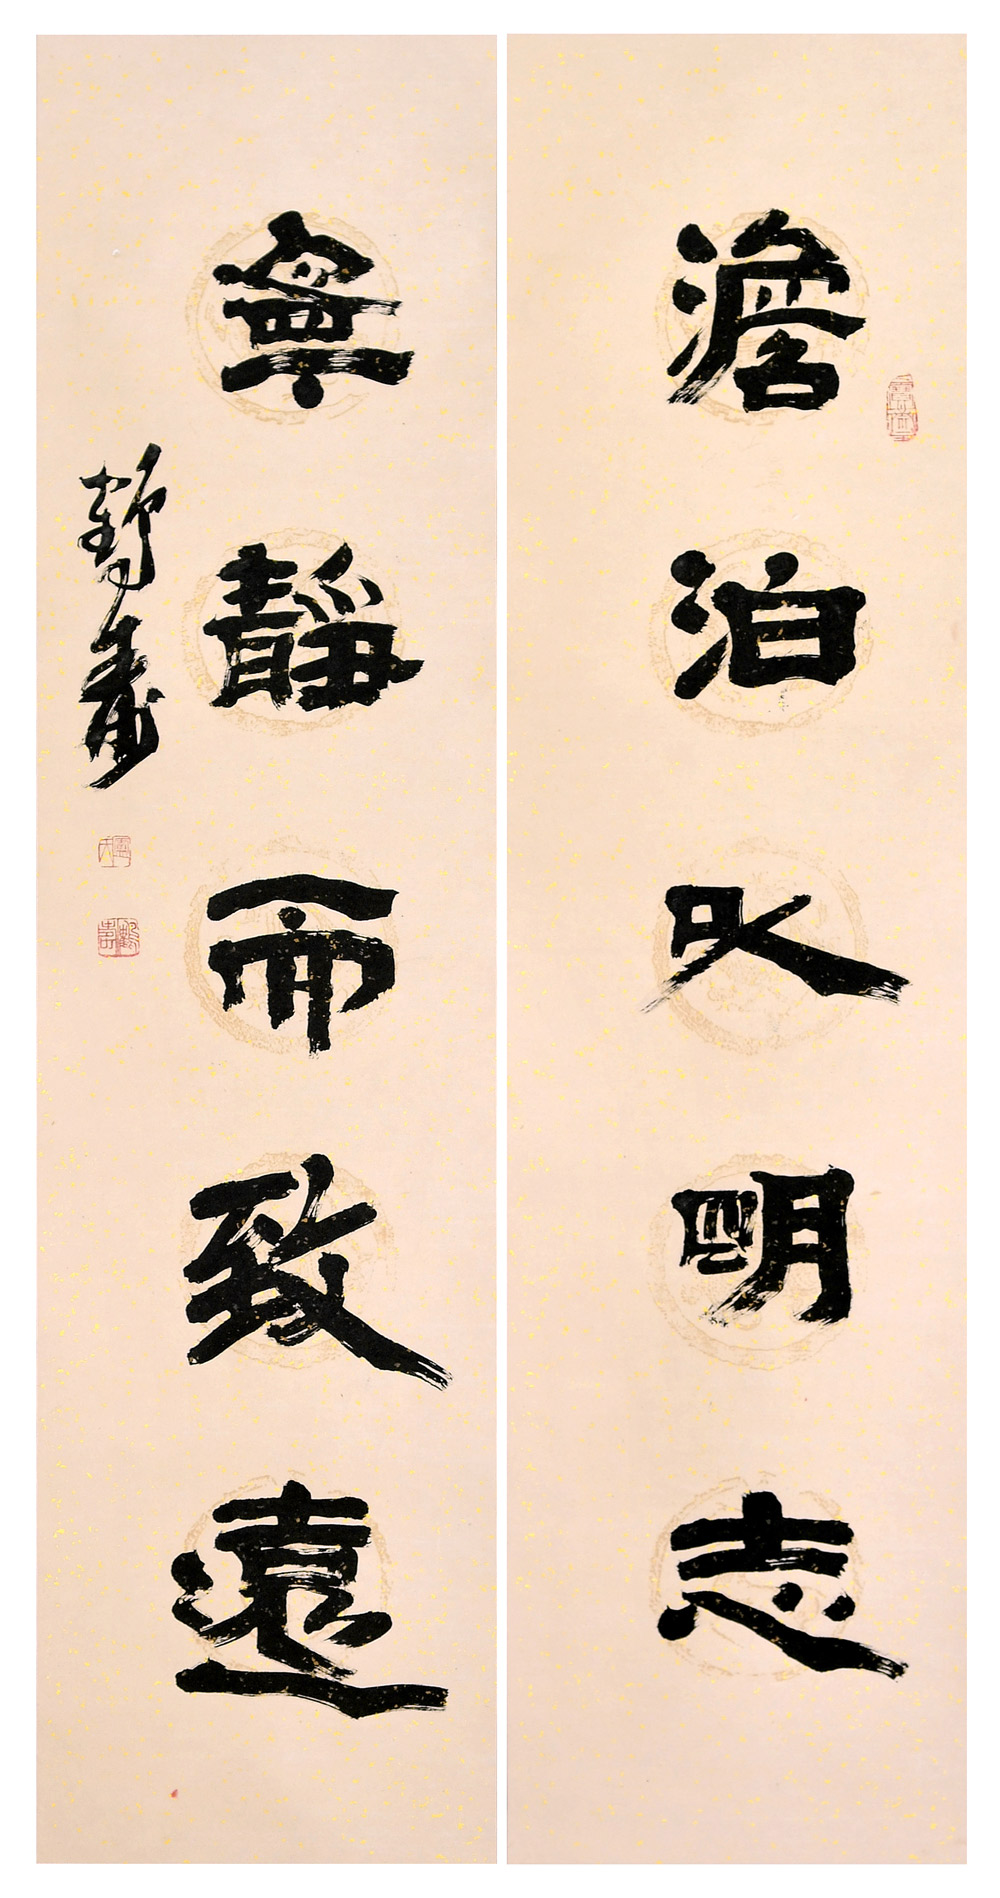 澹泊以明志
寧靜而致遠
鶴壽